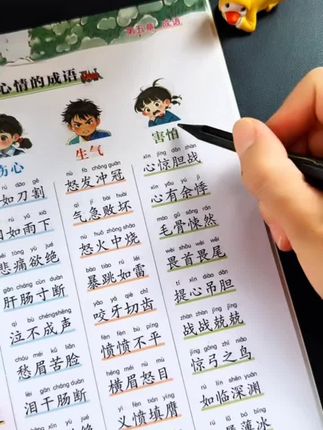 第五章 成语
心情的成语
伤心
rú dāo gē
如刀割
rú yǔ xià
如雨下
悲痛欲绝
gān cháng cùn duàn
肝肠寸断
qì bù chéng shēng
泣不成声
chóu méi kǔ liǎn
愁眉苦脸
lèi gān cháng duàn
泪干肠断
生气
nù fà chōng guān
怒发冲冠
qì jí bài huài
气急败坏
nù huǒ zhōng shāo
怒火中烧
bào tiào rú léi
暴跳如雷
yǎo yá qiè chǐ
咬牙切齿
fèn fèn bù píng
愤愤不平
héng méi nù mù
横眉怒目
yì fèn tián yīng
义愤填膺
害怕
xīn jīng dǎn zhàn
心惊胆战
xīn yǒu yú jì
心有余悸
máo gǔ sǒng rán
毛骨悚然
wèi shǒu wèi wěi
畏首畏尾
tí xīn diào dǎn
提心吊胆
zhàn zhàn jīng jīng
战战兢兢
jīng gōng zhī niǎo
惊弓之鸟
rú lín shēn yuān
如临深渊
薄冰